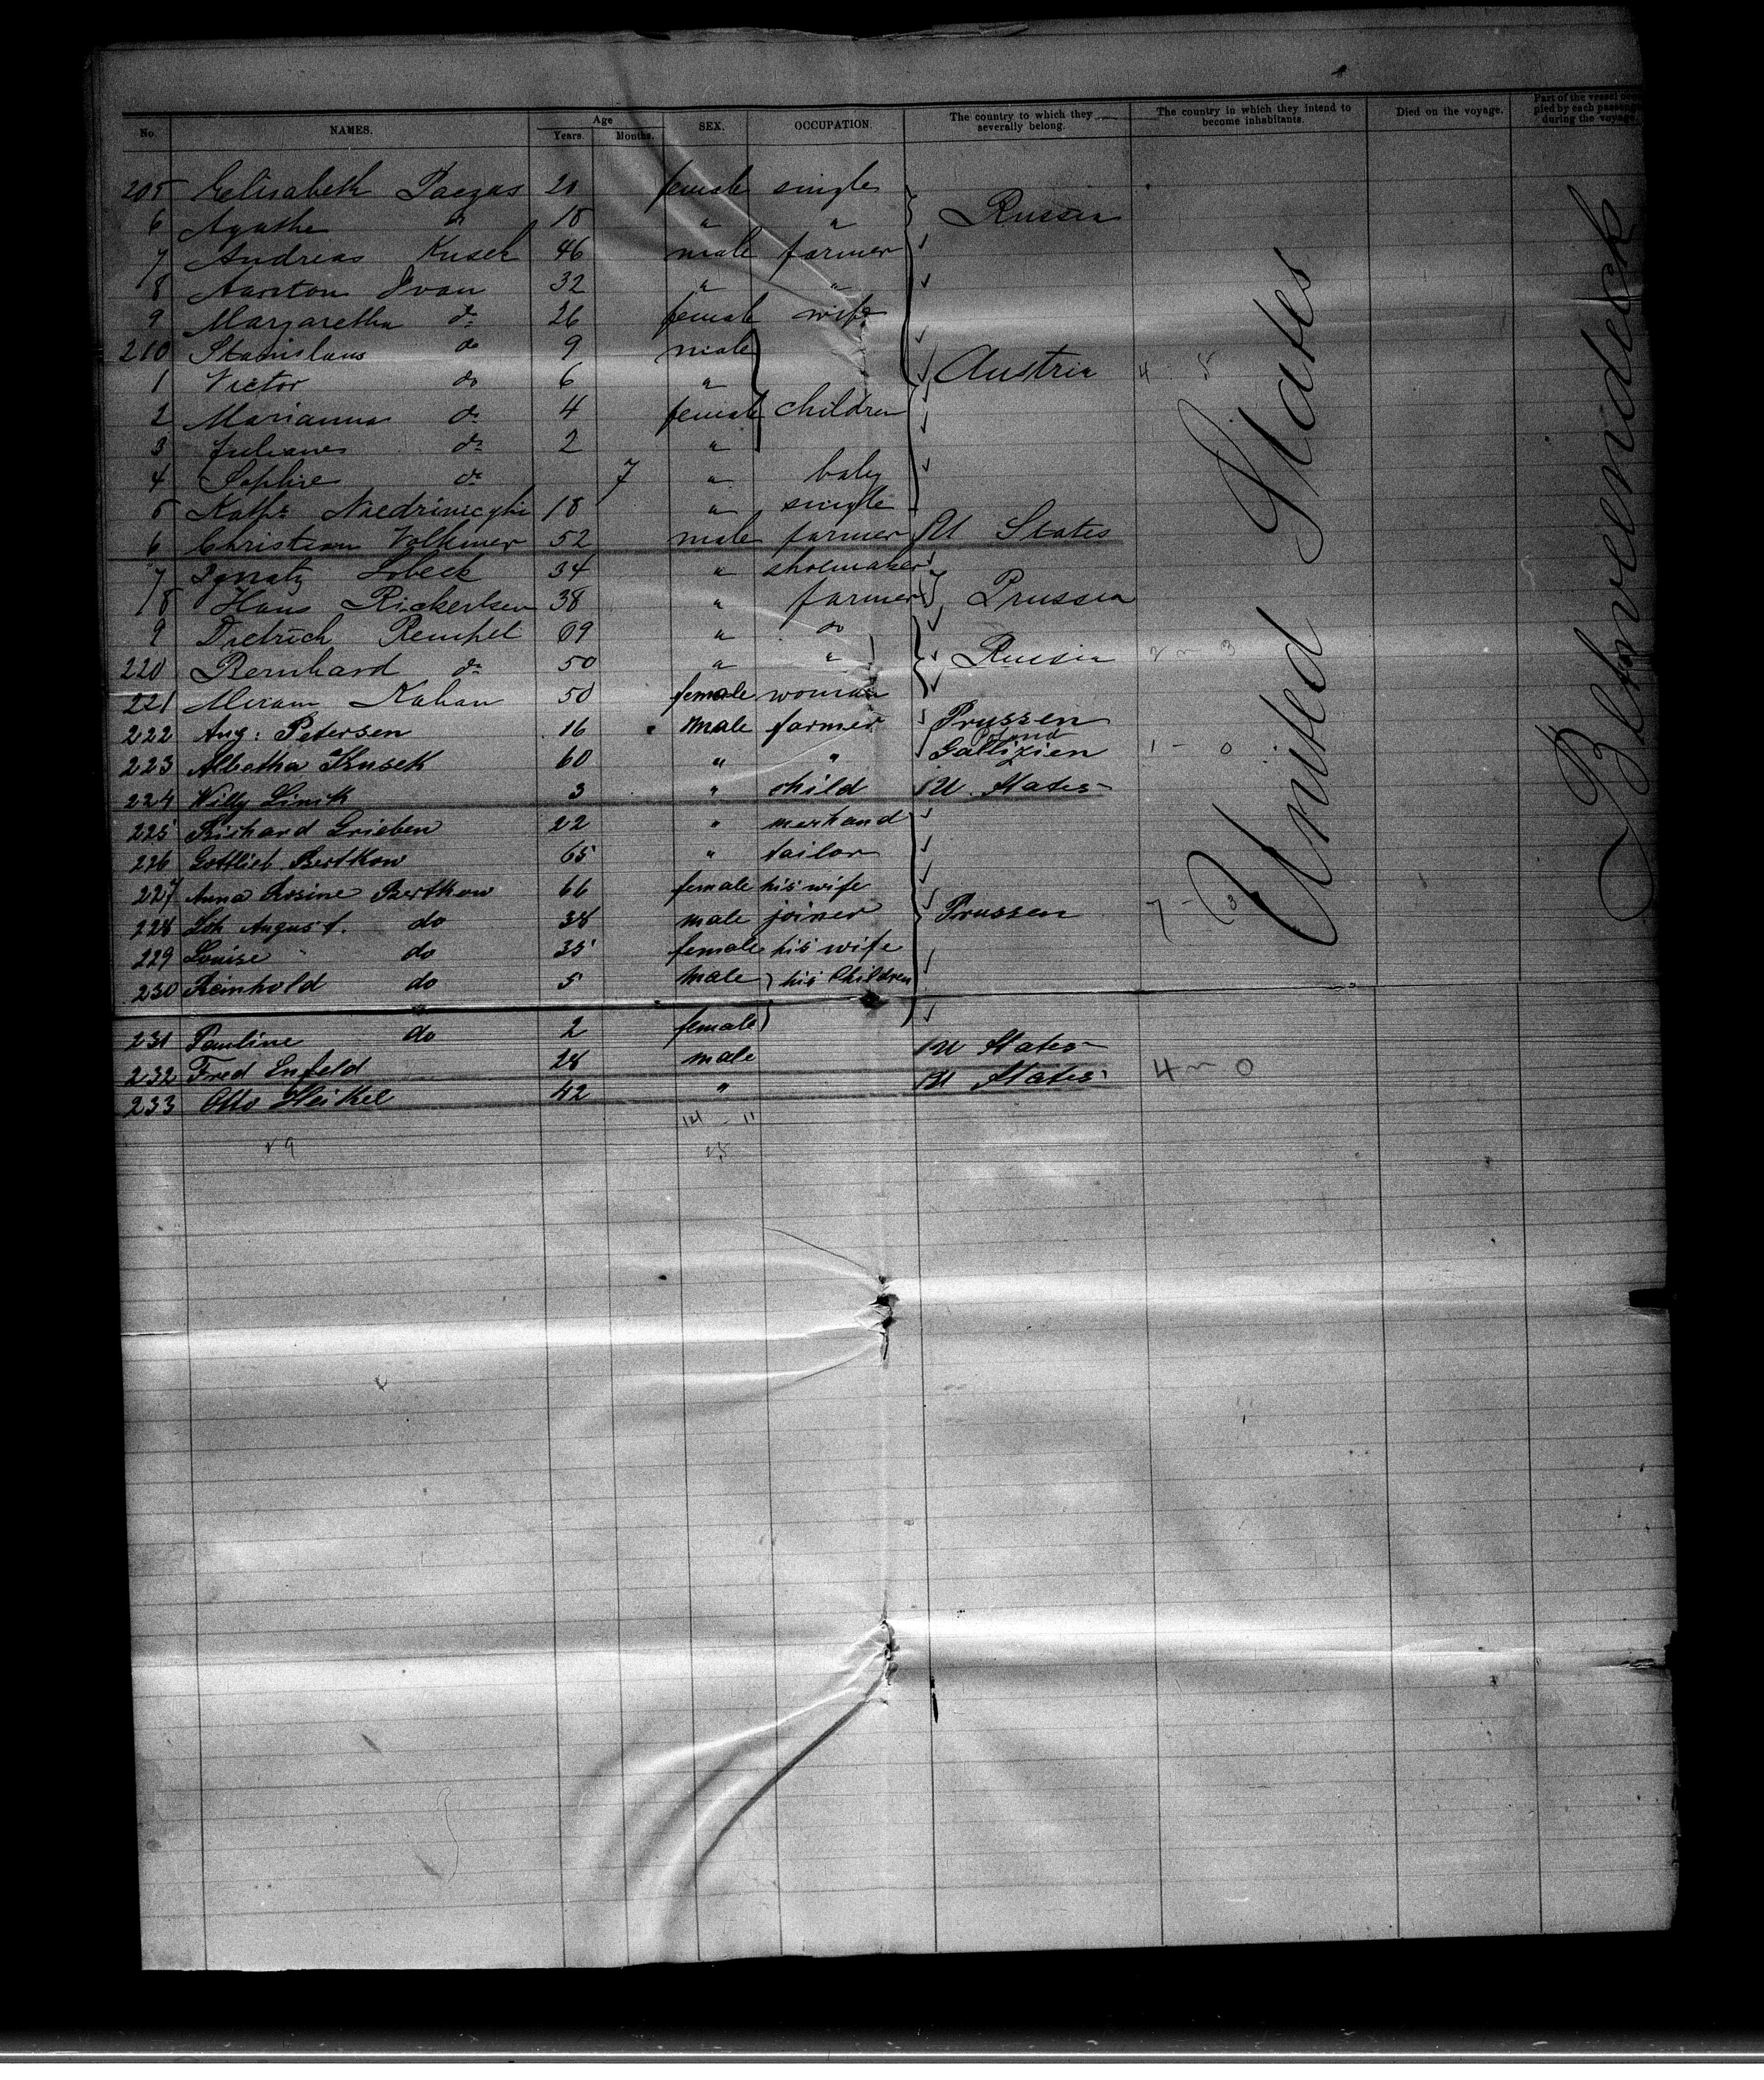 No. NAMES. Age Years. Months. SEX. OCCUPATION. The country to which they severally belong. The country in which they intend to become inhabitants. Died on the voyage. Part of the vessel occupied by each passenger during the voyage.
205 Elisabeth Paezas 20 female single
6 Agathe do 18 " " Russia
7 Andreas Kusek 46 male farmer
8 Ivan 32 " "
9 Margaretha do 26 female wife
210 Stanislaus do 9 male
1 Victor do 6 " Austria 4 - 5
2 Marianna do 4 female children
3 Juliane do 2 "
4 Sophie do 7 " baby
5 Kath: 18 " single
6 Christian Volkmer 52 male farmer U States
7 Ignatz Lobeck 34 " shoemaker
8 Hans Rickertsen 38 " farmer Prussia
9 Dietrich Rempel 69 " do
220 Bernhard do 50 " " Russia 2 - 3
221 Miram Kahan 50 female woman
222 Aug: Petersen 16 male farmer Prussen
223 Albertha Kusek 60 " " Poland Gallizien 1 - 0
224 Willy Linik 3 " child U. States
225 Richard Grieben 22 " merhand
226 Gottlieb Bertkow 65 " tailor
227 Anna Rosine Bertkow 66 female his wife
228 Joh August. do 38 male joiner Prussen 7 - 3
229 Louise do 35 female his wife
230 Reinhold do 5 male his Children
231 Pauline do 2 female
232 Fred Enfeld 28 male U States
233 Otto Heikel 42 " U States 4 - 0
14 - 11
29 25
United States
Betweendeck